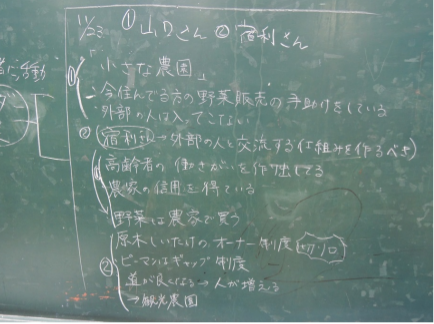 11/23 ①山口さん ②宿利さん
活動
① 「小さな農園」
・今住んでる方の野菜販売の手助けをしている
・外部の人は入ってこない
② 宿利 → 外部の人と交流する仕組みを作るべき
① 高齢者の働きがいを作り出してる
農家の信用を得ている
野菜は農家で買う
② 原木しいたけのオーナー制度 切り口
ピーマンはギャップ制度
道が良くなる → 人が増える
→ 観光農園